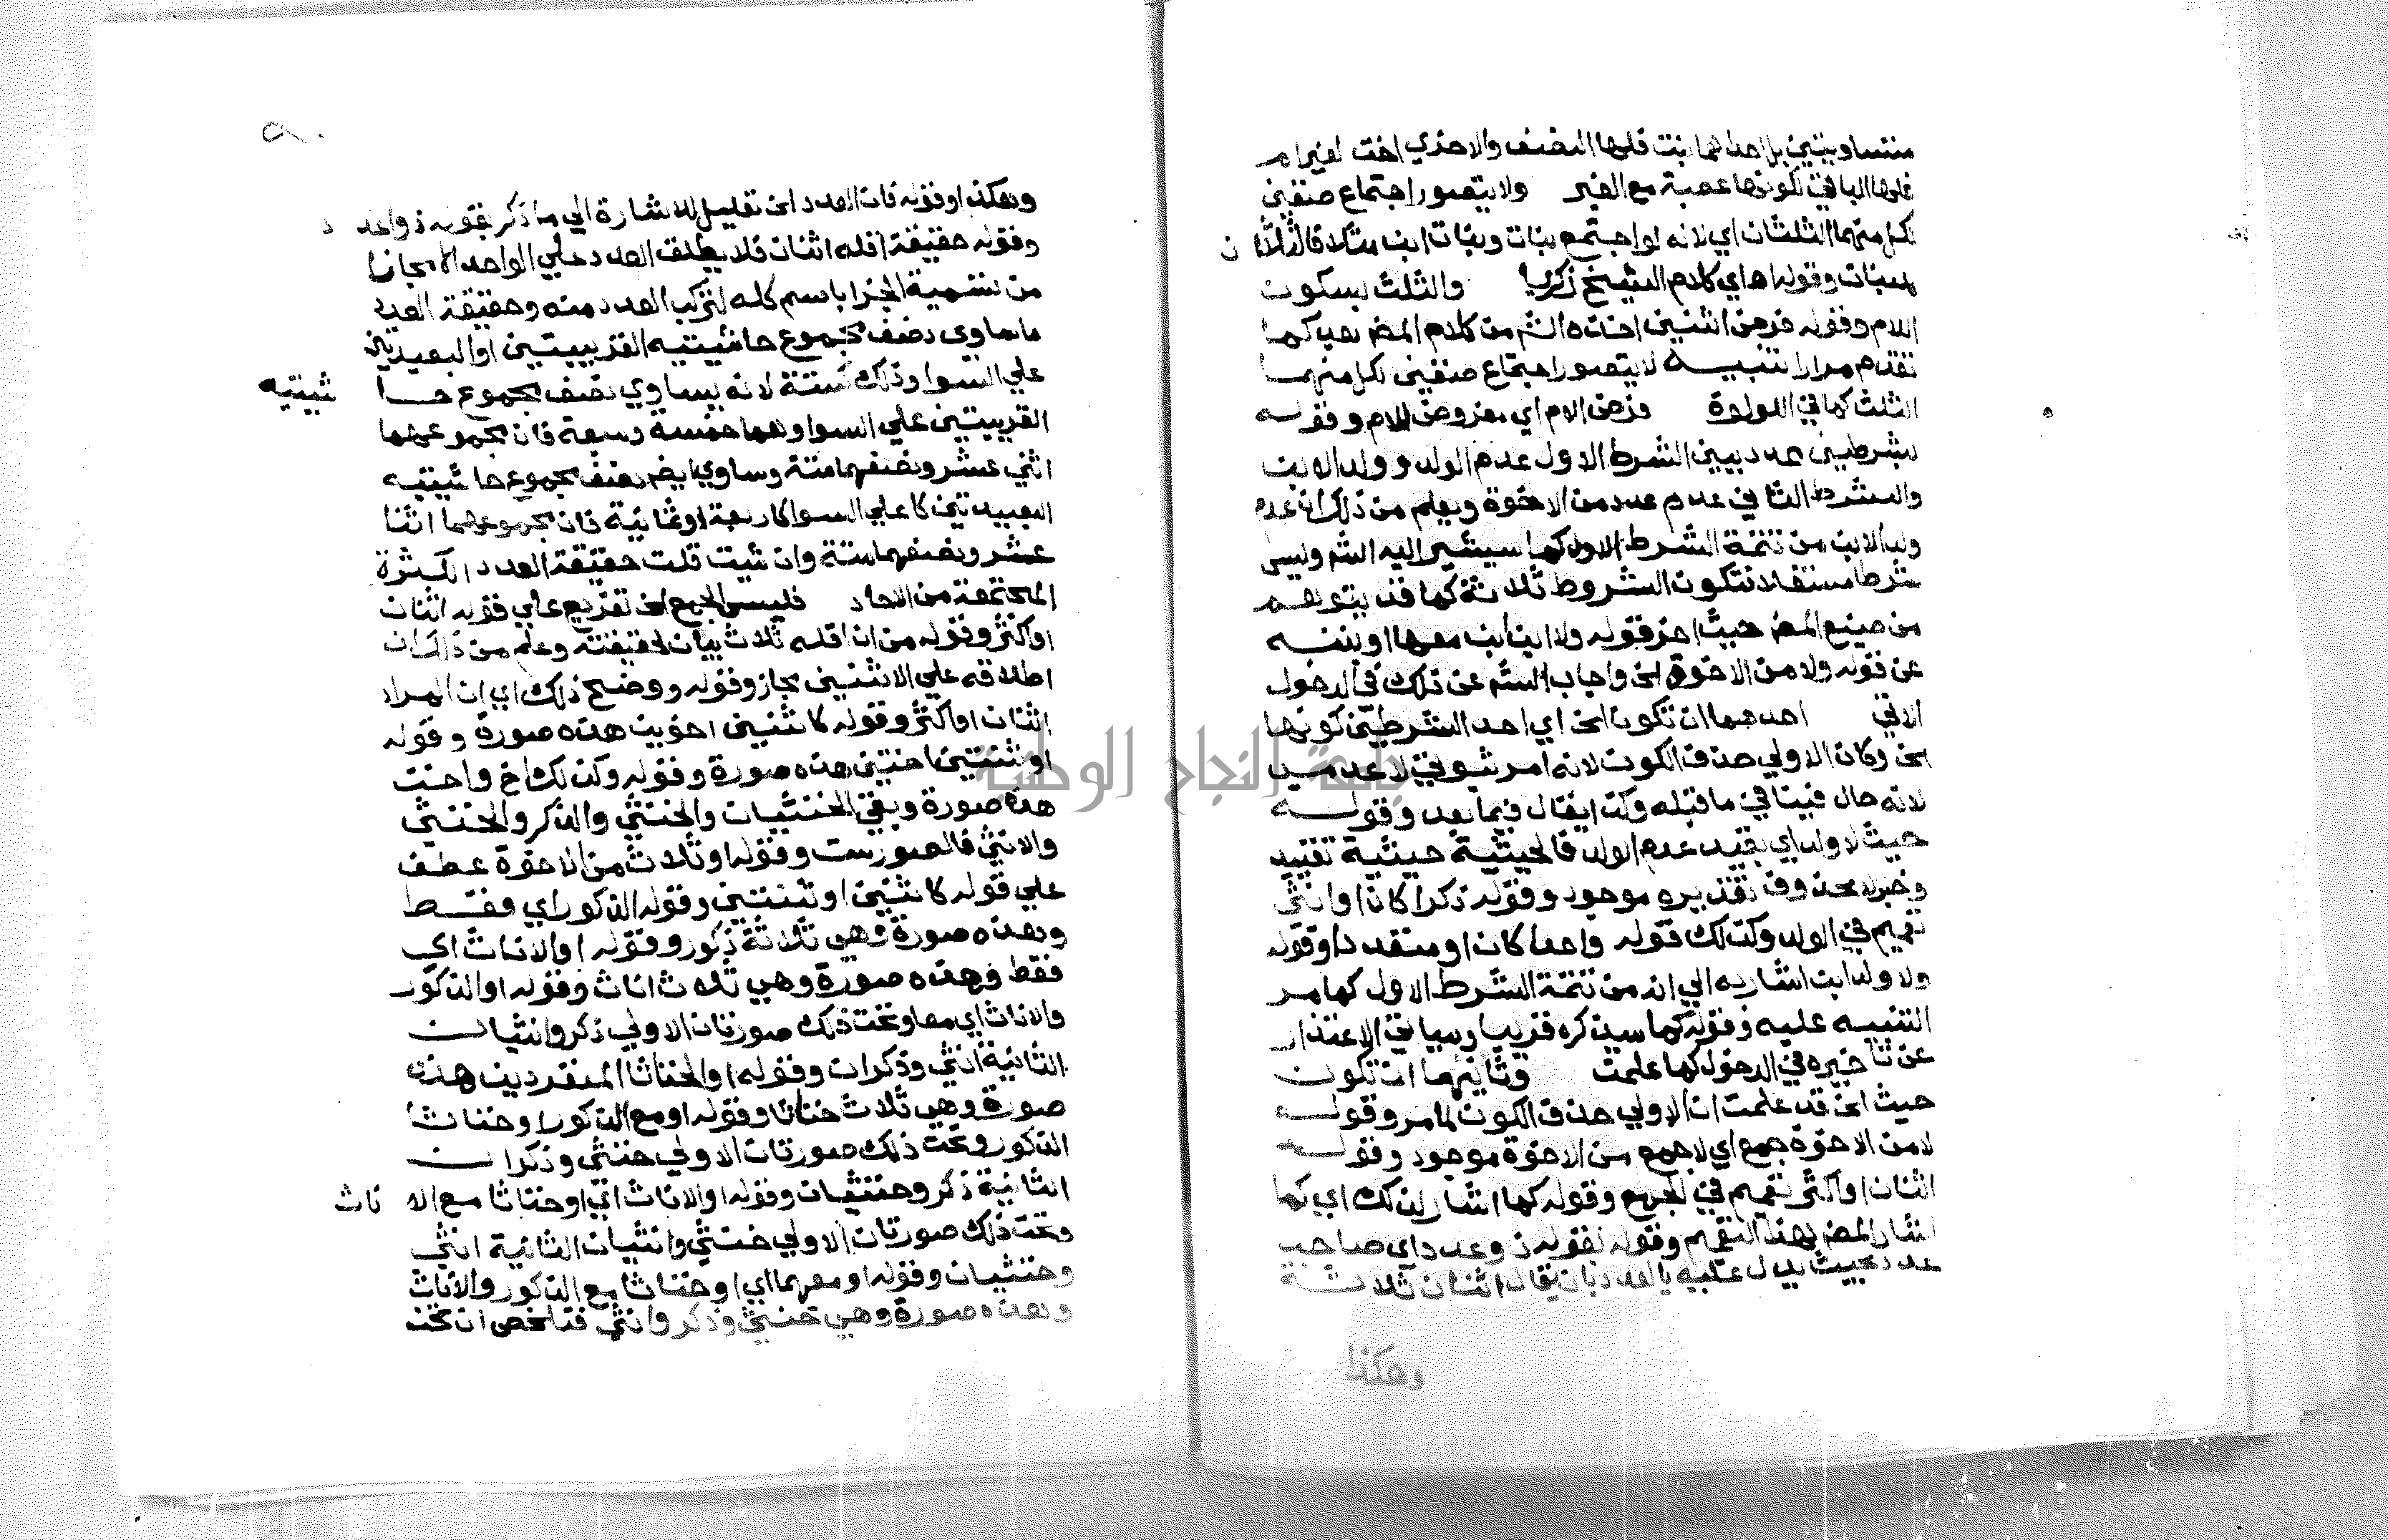 منتساويتين بل احداهما بنت فلها النصف والاخري اخت لغير ام
فلها الباقي لكونها عصبة مع الغير ولا يتصور اجتماع صنفين
لكل منهما الثلثان اي لانه لو اجتمع بنات وبنات ابن مثلا فالثلثا ن
للبنات وقوله اه اي كلام الشيخ زكريا والثلث بسكون
اللام وقوله فرض اثنين اختاه الشر من كلام المص بعد كما
تقدم مرارا تنبيه لا يتصور اجتماع صنفين لكل منهما
الثلث كما في اللولوة فرض الام اي مفروض للام وقوله
بشرطين عدميين الشرط الاول عدم الولد وولد الابن
والشرط الثاني عدم عدد من الاخوة ويعلم من ذلك ان عدم
ولد الابن من تتمة الشرط الاول كما سيشير اليه الشر وليس
شرطا مستقلا فتكون الشروط ثلاثة كما قد يتوهم
من صنيع المص حيث اخر قوله ولا ابن ابن معها او بنته
عن قوله ولا من الاخوة الخ واجاب الشر عن ذلك في الدخول
الاتي احدهما ان تكون الخ اي احد الشرطين كونها
الخ وكان الاولي حذف الكون لانه امر ثبوتي لا عدمي
لانه حال فينا في ما قبله وكذا يقال فيما بعد وقوله
حيث لا ولد اي بقيد عدم الولد فالحيثية حيثية تقييد
وخبر لا محذوف تقديره موجود وقوله ذكرا كان او انثي
تعميم في الولد وكذلك قوله واحدا كان او متعددا وقوله
ولا ولد ابن اشار به الي انه من تتمة الشرط الاول كما مر
التنبيه عليه وقوله كما سيذكره قريبا وسياتي الاعتذار
عن تاخيره في الدخول كما علمت وثانيهما ان تكون
حيث الخ قد علمت ان الاولي حذف الكون لما مر وقوله
لا من الاخوة جمع اي لا جمع من الاخوة موجود وقوله
اثنان او اكثر تعميم في الجمع وقوله كما اشار لذلك اي كما
اشار المص بهذا التعميم وقوله لقوله ذو عدد اي صاحب
عدد بحيث يدل عليه بالعدد بان يقال اثنان ثلاثة
وهكذا
وهكذا وقوله فان العدد الخ تعليل للاشارة الي ما ذكر بقوله ذو عد د
وقوله حقيقة اقله اثنان فلا يطلق العدد علي الواحد الا مجازا
من تسمية الجزا باسم كله لتركب العدد منه وحقيقة العدد
ما ساوي نصف مجموع حاشيتيه القريبتين او البعيدتين
علي السوا وذلك كستة لانه يساوي نصف مجموع حا شيتيه
القريبتين علي السوا وهما خمسة وسبعة فان مجموعهما
اثني عشر ونصفهما ستة وساوي ايضر نصف مجموع حاشيتيه
البعيدتين كا علي السوا كاربعة وثمانية فان مجموعهما اثنا
عشر ونصفهما ستة وان شيت قلت حقيقة العدد الكثرة
المجتمعة من الاحاد فليس الجمع الخ تفريع علي قوله اثنان
او اكثر وقوله من ان اقله ثلاث بيان لحقيقته وعلم من ذلك ان
اطلاقه علي الاثنين مجاز وقوله ووضح ذلك اي ان المراد
اثنان او اكثر وقوله كاثنين اخوين هذه صورة وقوله
او ثنتين اختين هذه صورة وقوله وكذلك اخ واخت
هذه صورة وبقي الخنثيان والخنثي والذكر والخنثي
والانثي فالصور ست وقوله او ثلاث من الاخوة عطف
علي قوله كاثنين او ثنتين وقوله الذكور اي فقط
وهذه صورة وهي ثلاثة ذكور وقوله او الاناث اي
فقط وهذه صورة وهي ثلاث اناث وقوله او الذكور
والاناث اي معا وتحت ذلك صورتان الاولي ذكر وانثيان
الثانية انثي وذكران وقوله او الخناثا المنفردين هذه
صورة وهي ثلاث خناثا وقوله او مع الذكور او خناثا
الذكور وتحت ذلك صورتان الاولي خنثي وذكران
الثانية ذكر وخنثيان وقوله او الاناث اي او خناثا مع الا ناث
وتحت ذلك صورتان الاولي خنثي وانثيان الثانية انثي
وخنثيان وقوله او معهما اي او خناثا مع الذكور والاناث
وهذه صورة وهي خنثي وذكر وانثي فتلخص ان تحت
جامعة النجاح الوطنية